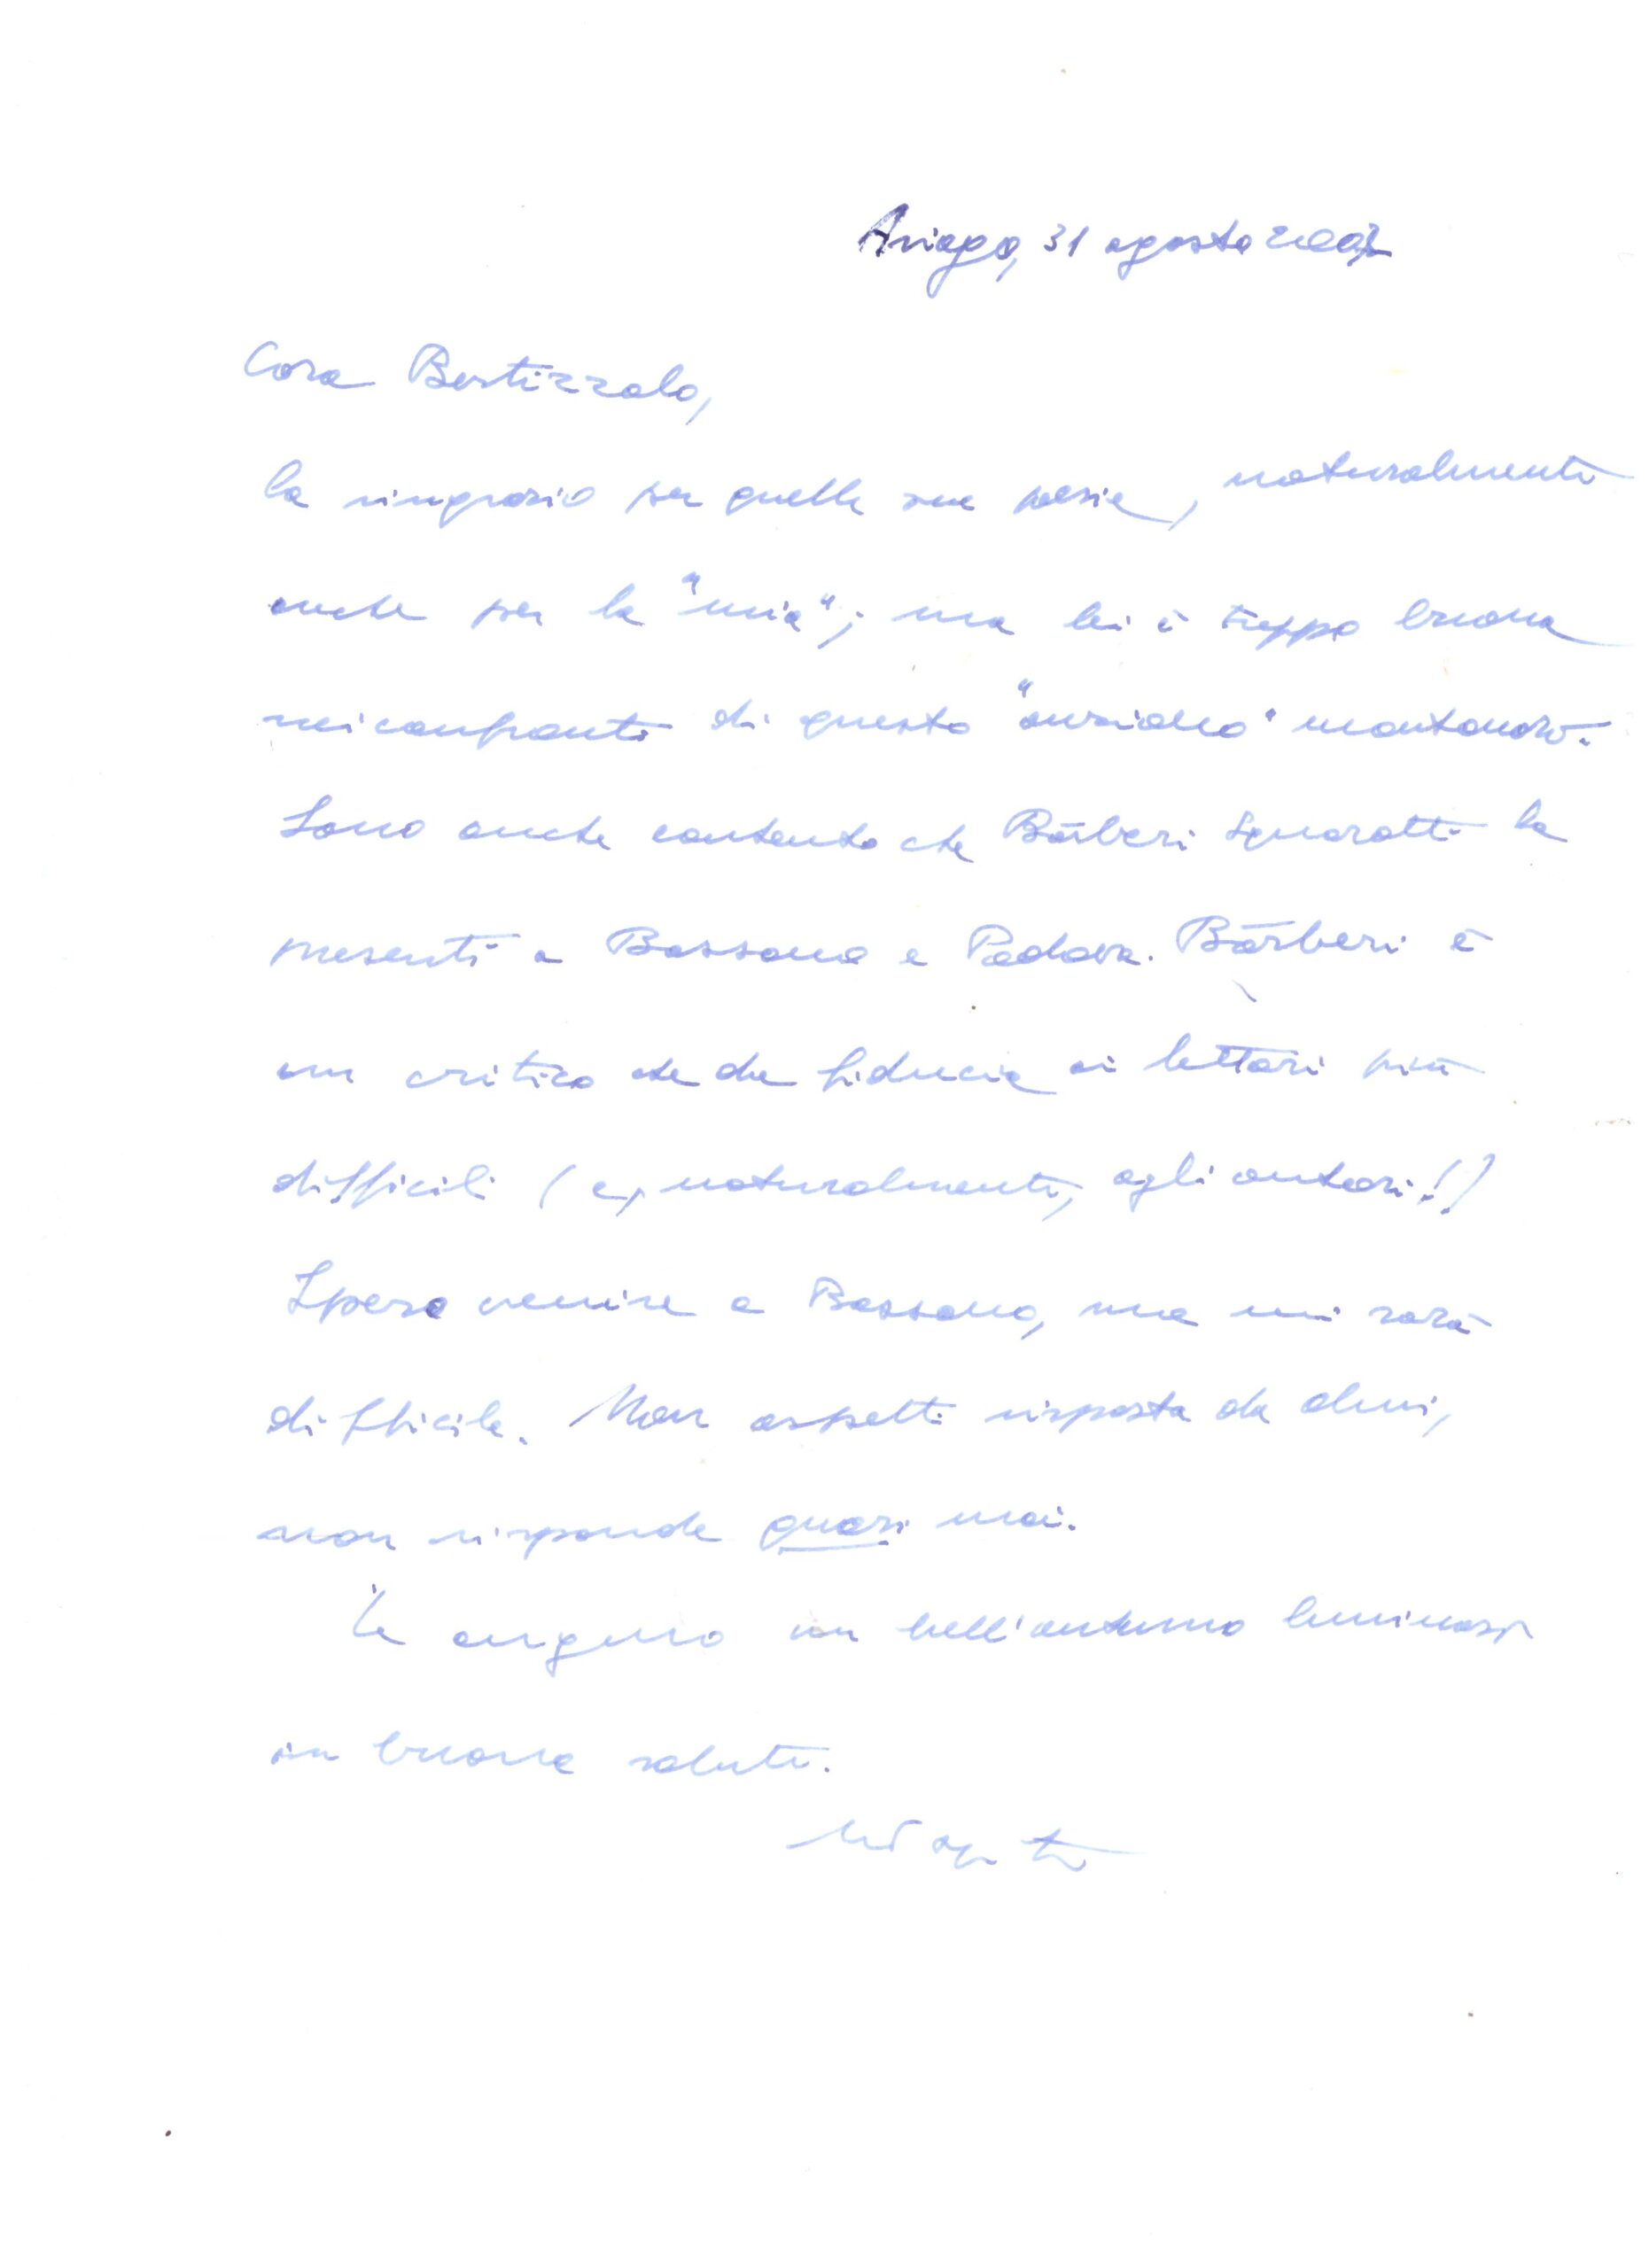 Asiago, 31 agosto 2002
Cara Bertizzolo,
la ringrazio per quelle sue poesie, naturalmente
anche per la "mia"; ma lei è troppo buona
nei confronti di questo "anziano" montanaro.
Sono anche contento che Bàrberi Squarotti la
presenti a Bassano e Padova. Bàrberi è
un critico che dà fiducia ai lettori più
difficili (e, naturalmente, agli autori!)
Spero venire a Bassano, ma mi sarà
difficile. Non aspetti risposta da Olmi,
non risponde quasi mai.
Le auguro un bell'autunno luminoso
in buona salute.